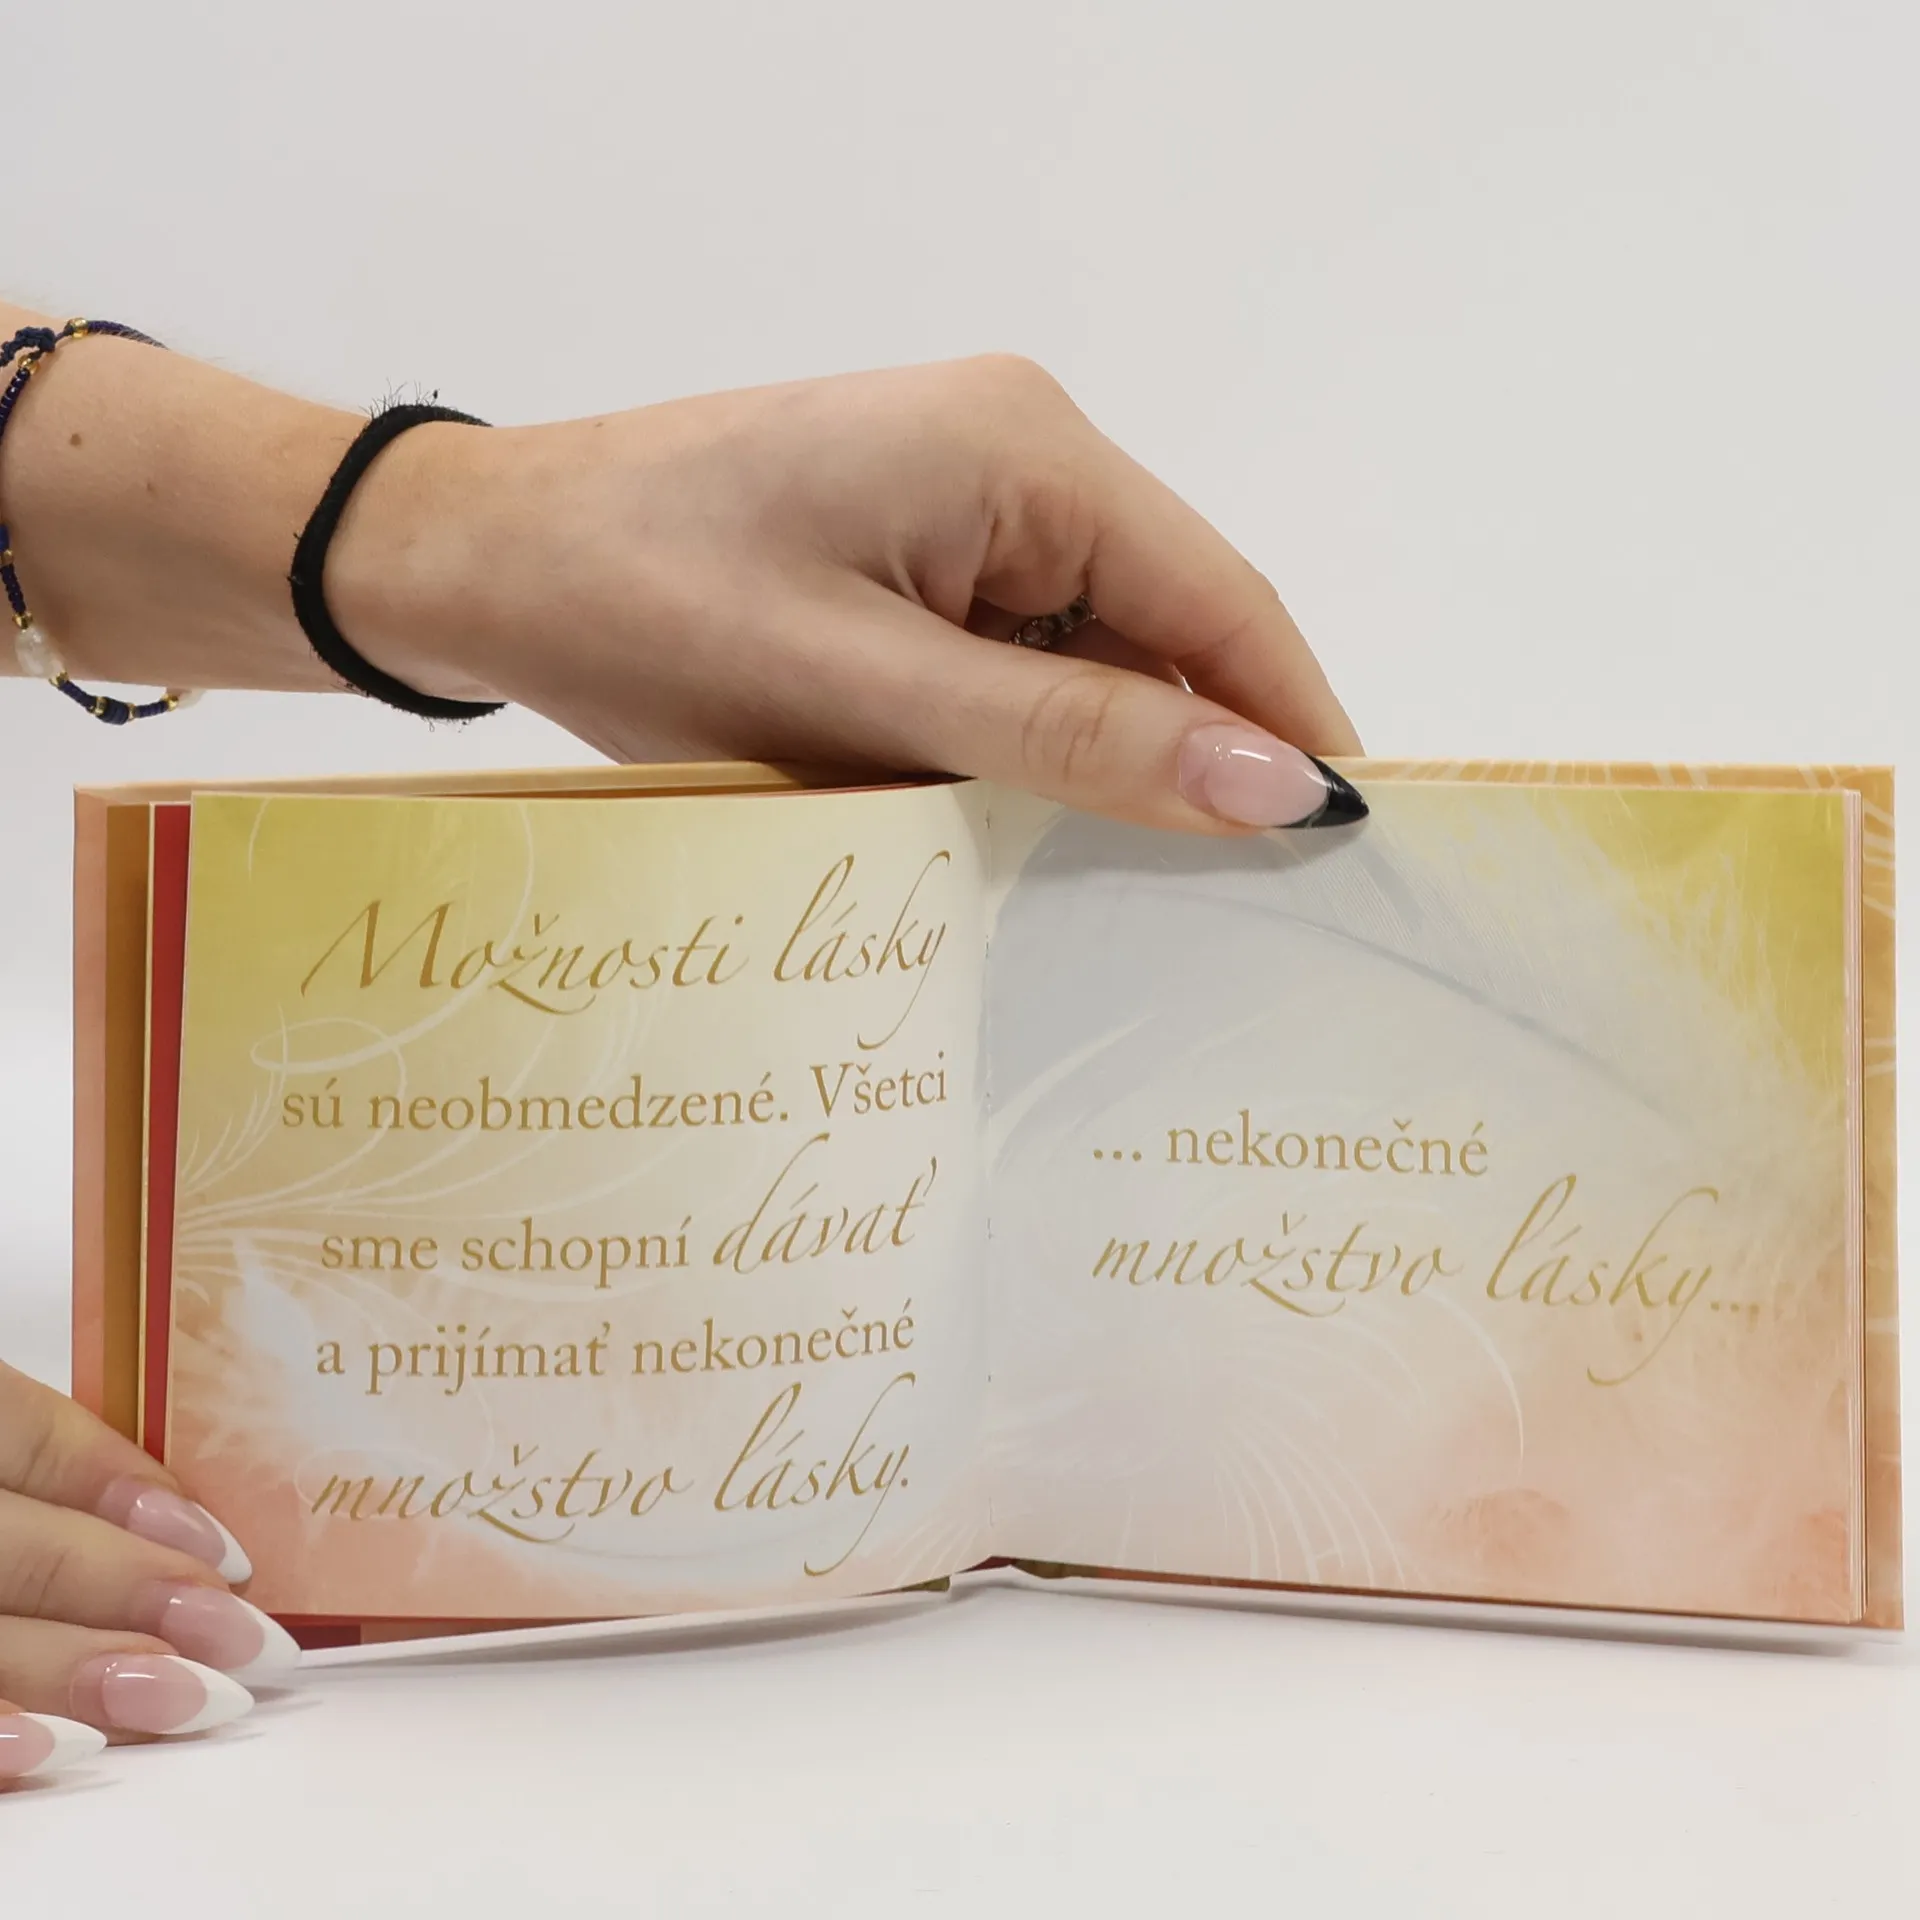 Možnosti lásky
sú neobmedzené. Všetci
sme schopní dávať
a prijímať nekonečné
množstvo lásky.
... nekonečné
množstvo lásky...